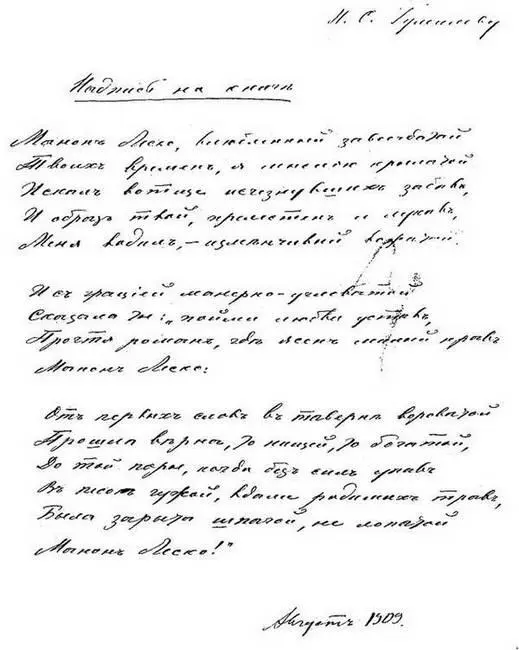 Н. С. Гумилеву
Надпись на книгѣ
Манонъ Леско, влюбленный завсегдатай
Твоихъ временъ, я мыслью крылатой
Искалъ вотще исчезнувшихъ забавъ,
И образъ твой, прелестенъ и лукавъ,
Меня водилъ, – измѣнчивый вожатый.
И съ граціей манерно-угловатой
Сказала ты: „пойми любви уставъ,
Прочтя романъ, гдѣ ясенъ милый нравъ
Манонъ Леско:
Отъ первыхъ словъ въ тавернѣ вороватой
Прошла вѣрна, то нищей, то богатой,
До той поры, когда безъ силъ упавъ
Въ песокъ чужой, вдали родимыхъ травъ,
Была зарыта шпагой, не лопатой
Манонъ Леско!"
Августъ 1909.